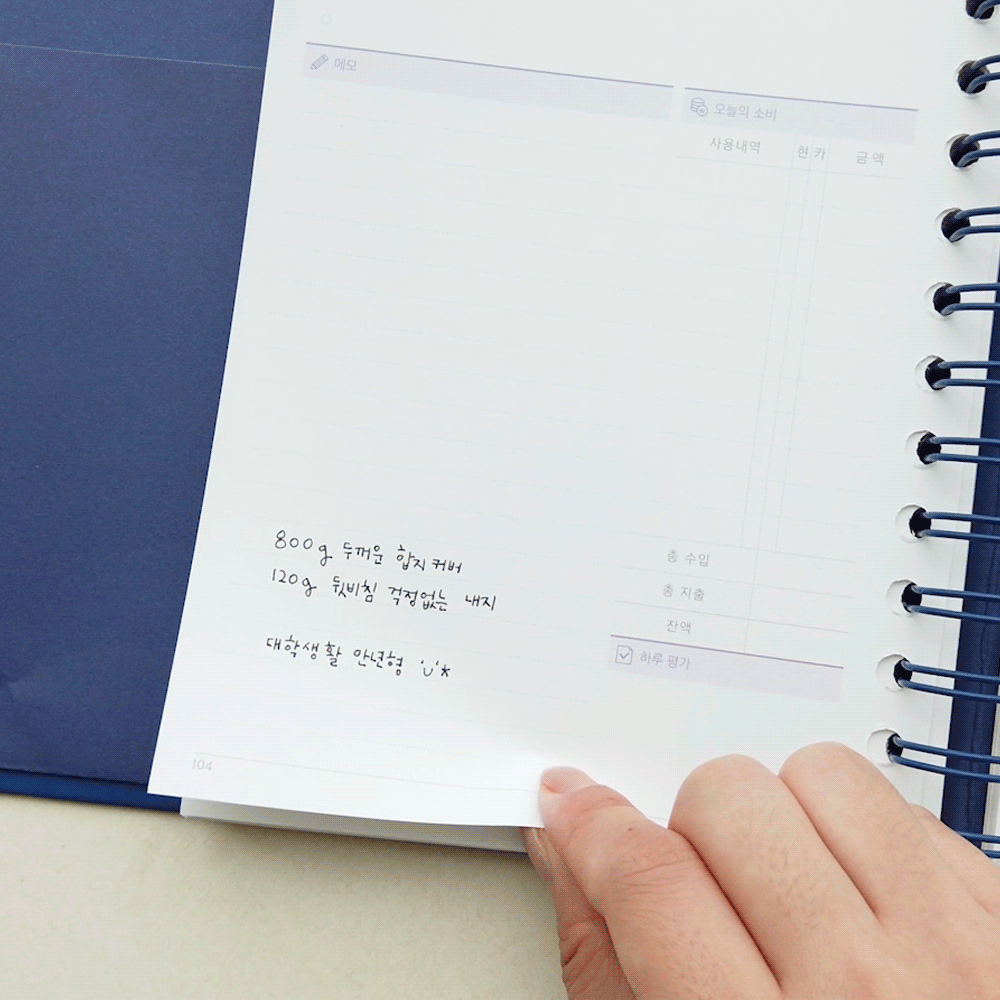 메모
오늘의 소비
사용내역 현 카 금액
800g 두꺼운 합지커버
120g 뒷비침 걱정없는 내지
대학생활 만년형
총 수입
총 지출
잔액
하루 평가
104